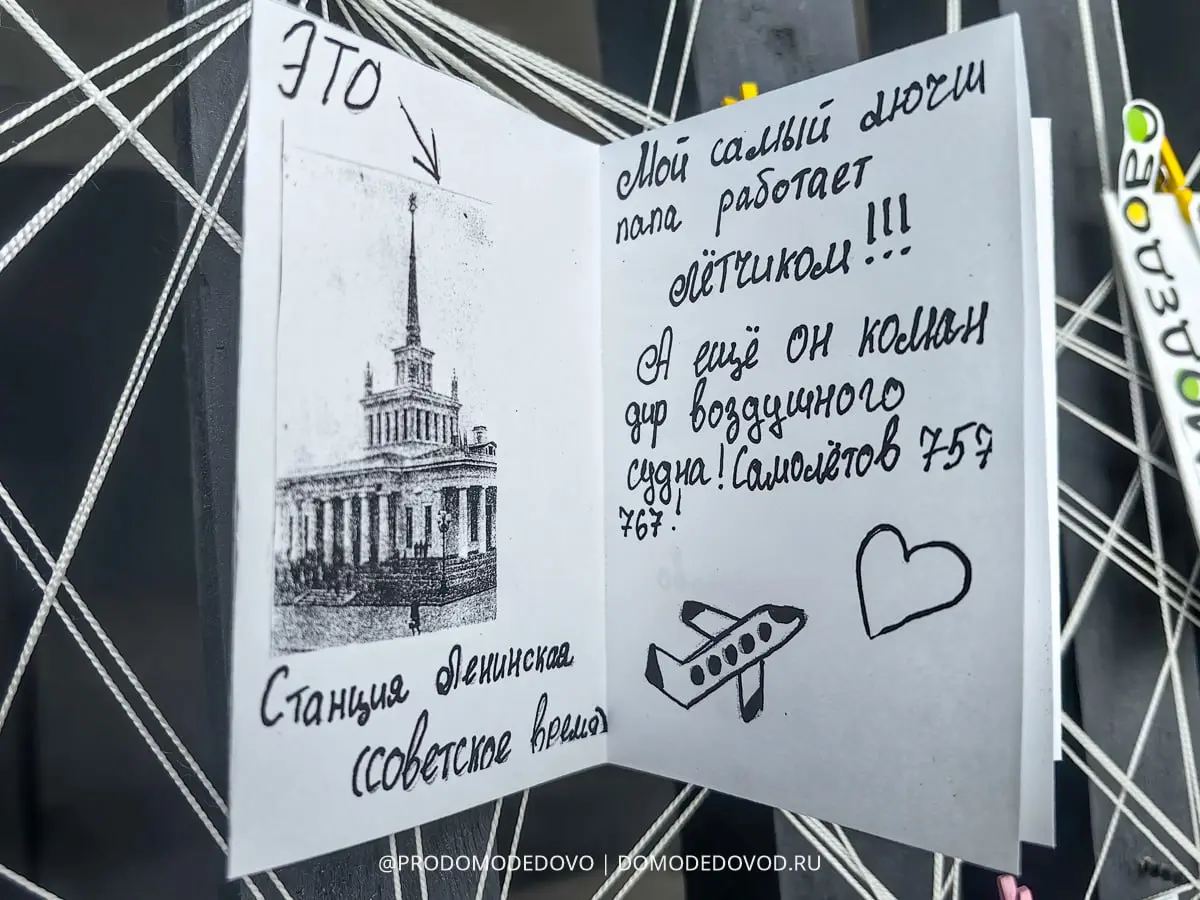 ЭТО
Станция Ленинская
(советское время)
Мой самый лючш
папа работает
лётчиком!!!
А ещё он коман
дир воздушного
судна! Самолётов 757
767!
@PRODOMODEDOVO | DOMODEDOVOD.RU